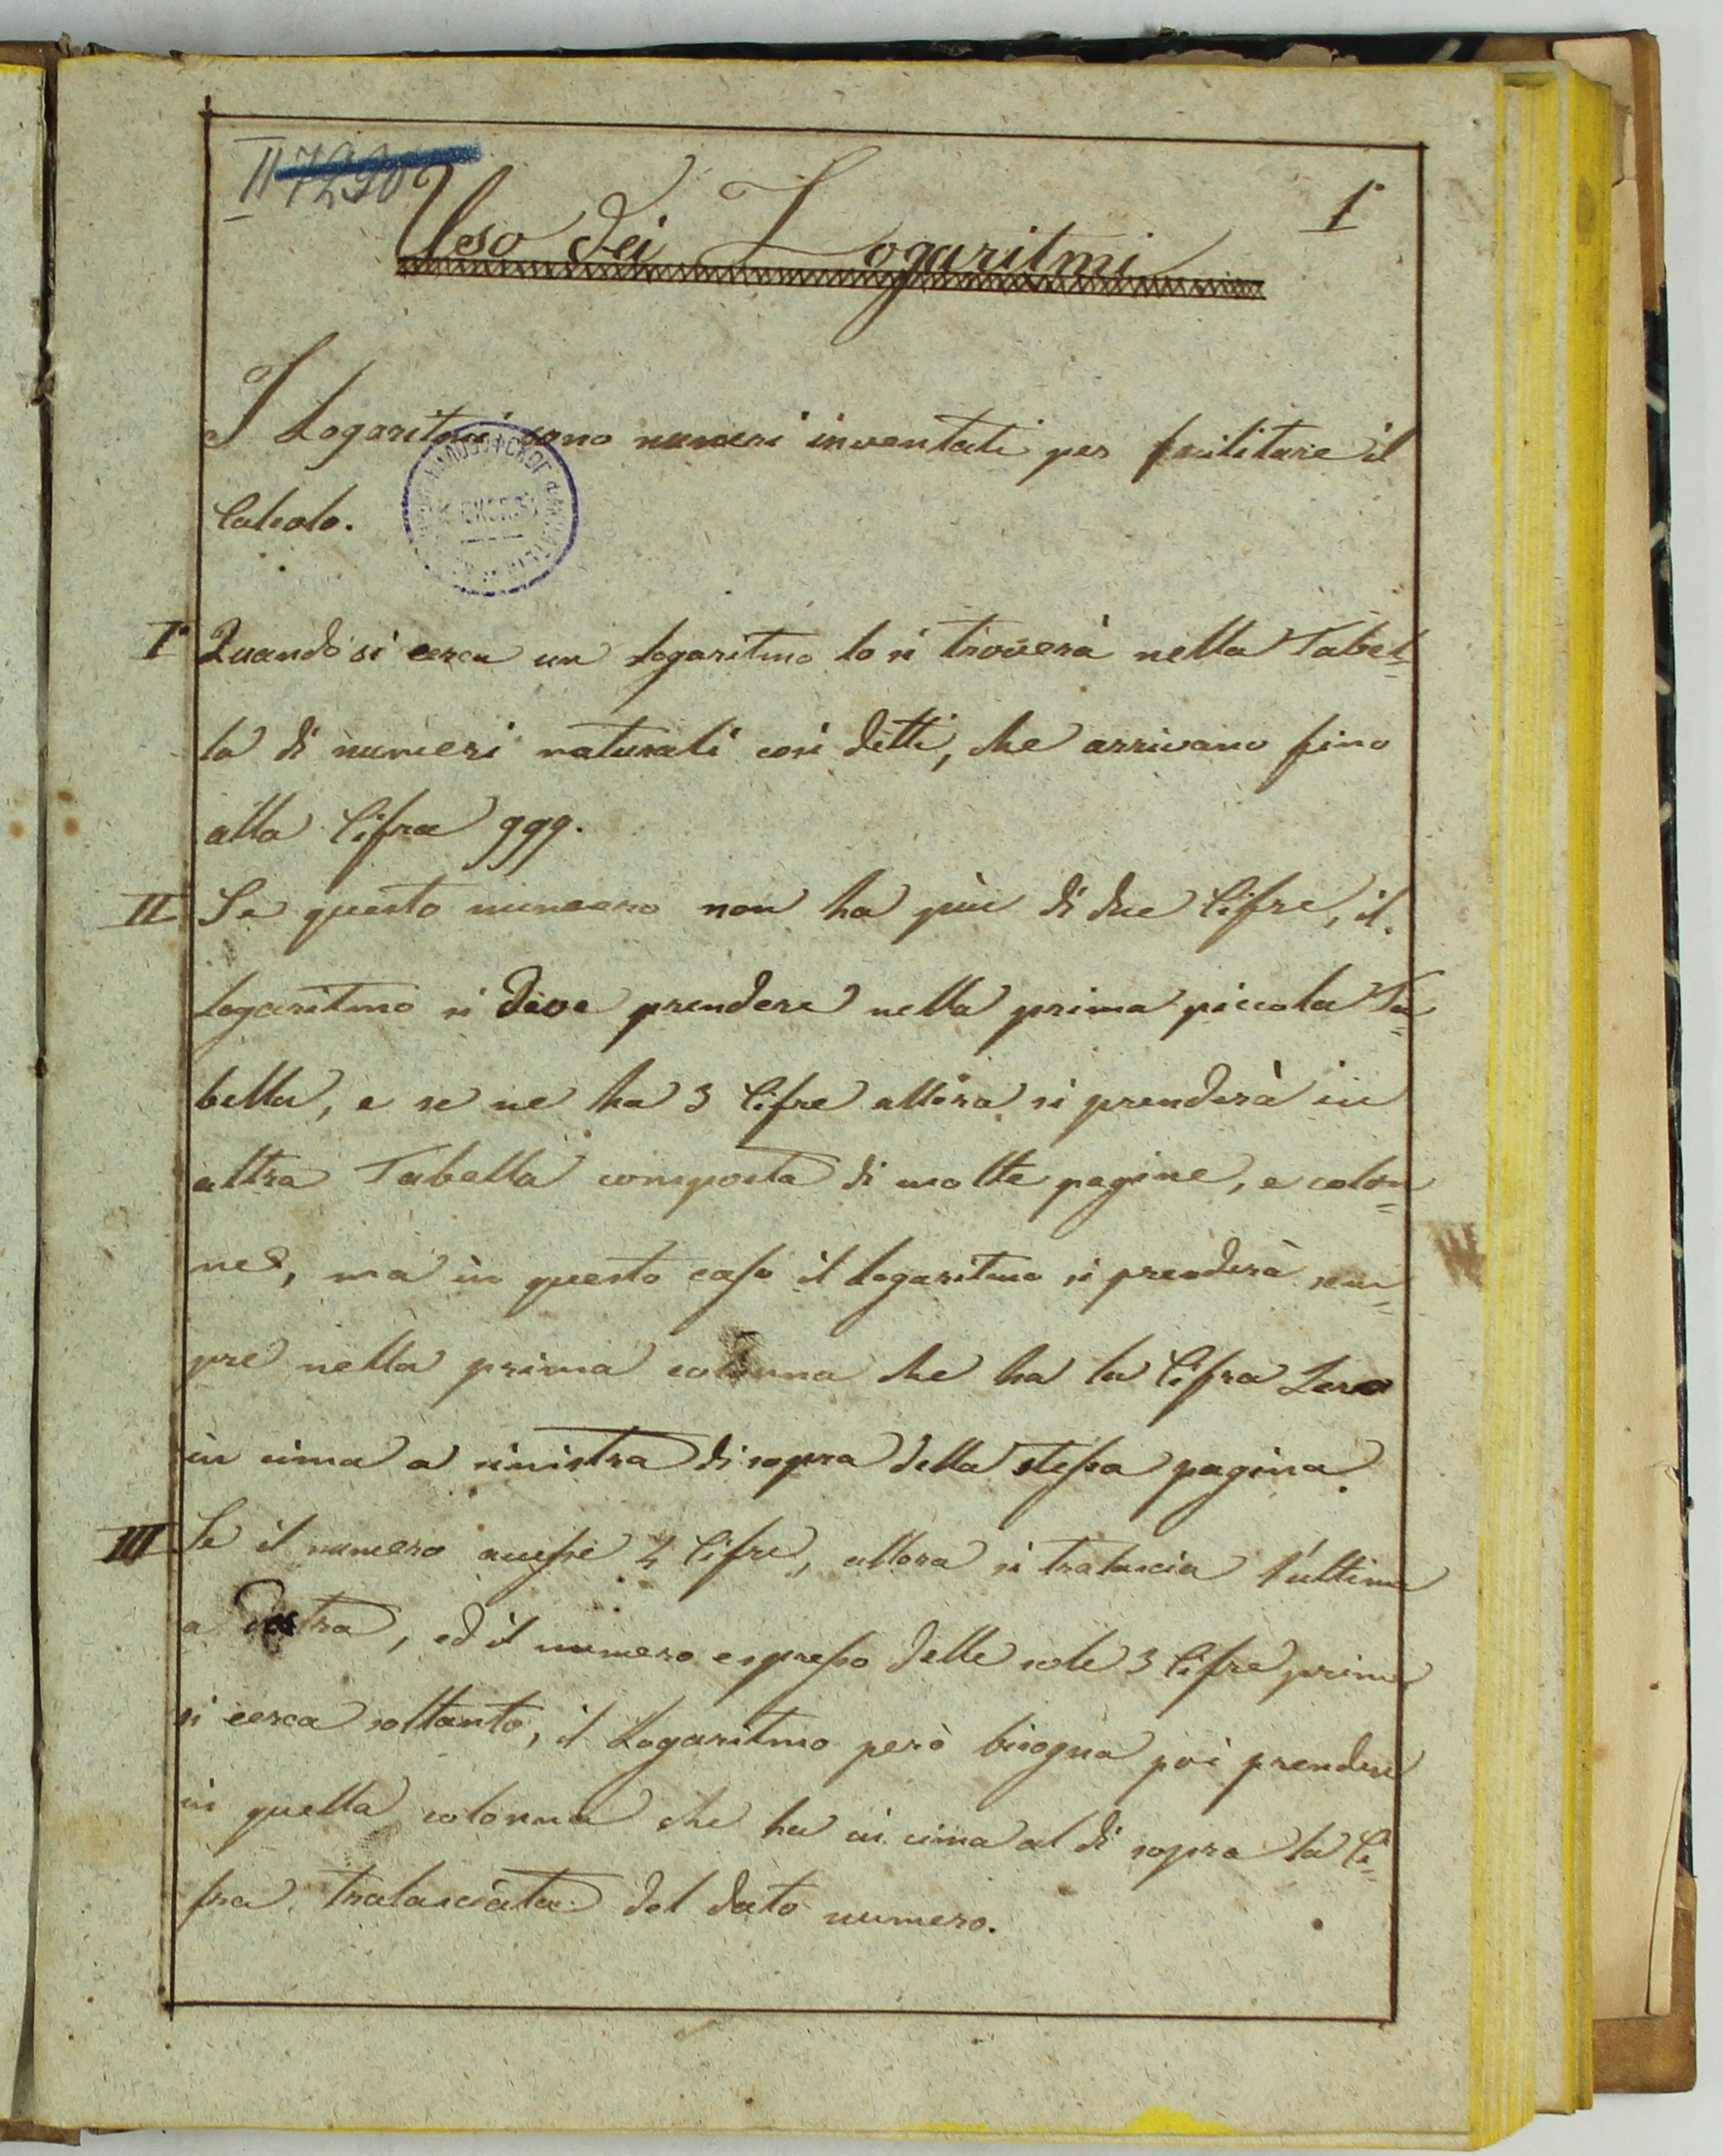 II 7290
1
Uso dei Logaritmi
I Logaritmi sono numeri inventati per facilitare il
Calcolo.
I° Quando si cerca un logaritmo lo si troverà nella Tabel=
la di numeri naturali cosi detti, che arrivano fino
alla Cifra 999.
II Se questo numero non ha più di due Cifre, il
logaritmo si deve prendere nella prima piccola Ta=
bella, e se ne ha 3 Cifre allora si prenderà in
altra Tabella composta di molte pagine, e colon=
ne, ma in questo caso il Logaritmo si prenderà sem=
pre nella prima colonna che ha la Cifra Zero
in cima a sinistra di sopra della stessa pagina.
III Se il numero avesse 4 Cifre, allora si tralascia l'ultima
a destra, ed il numero espresso delle sole 3 Cifre prime
si cerca soltanto, il Logaritmo però bisogna poi prendere
in quella colonna che ha in cima al di sopra la Ci=
fra tralasciata del dato numero.